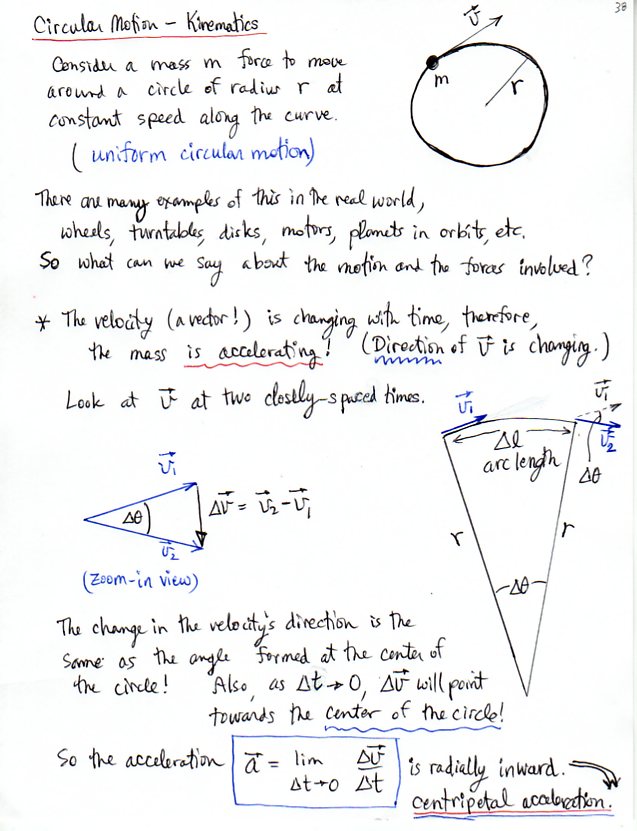 38
Circular Motion – Kinematics
Consider a mass m force to move
around a circle of radius r at
constant speed along the curve.
(uniform circular motion)
v⃗
m
r
There are many examples of this in the real world,
wheels, turntables, disks, motors, planets in orbits, etc.
So what can we say about the motion and the forces involved?
* The velocity (a vector!) is changing with time, therefore,
the mass is accelerating! (Direction of v⃗ is changing.)
Look at v⃗ at two closely-spaced times.
v⃗₁
Δθ
v⃗₂
Δv⃗ = v⃗₂ - v⃗₁
(Zoom-in view)
v⃗₁
v⃗₁
v⃗₂
Δl
arc length
Δθ
r
r
Δθ
The change in the velocity's direction is the
same as the angle formed at the center of
the circle! Also, as Δt → 0, Δv⃗ will point
towards the center of the circle!
So the acceleration a⃗ = lim Δt→0 Δv⃗/Δt is radially inward.
centripetal acceleration.